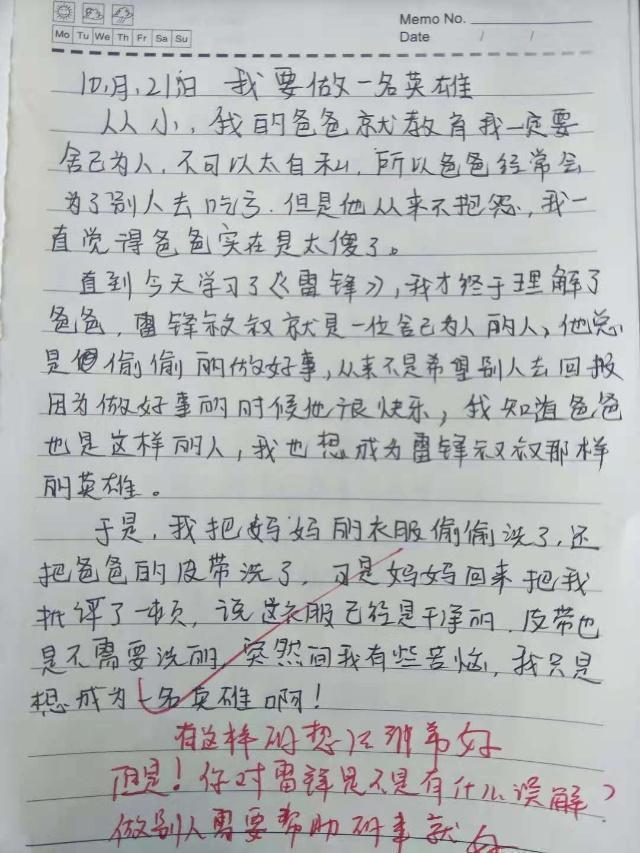 Memo No.
Mo Tu We Th Fr Sa Su
Date / /
10月,21日 我要做一名英雄
从小,我的爸爸就教育我一定要
舍己为人,不可以太自私,所以爸爸经常会
为了别人去吃亏.但是他从来不抱怨,我一
直觉得爸爸实在是太傻了。
直到今天学习了《雷锋》,我才终于理解了
爸爸,雷锋叔叔就是一位舍己为人的人,他总
是偷偷的做好事,从来不是希望别人去回报
因为做好事的时候他很快乐,我知道爸爸
也是这样的人,我也想成为雷锋叔叔那样
的英雄。
于是,我把妈妈的衣服偷偷洗了,还
把爸爸的皮带洗了,可是妈妈回来把我
批评了一顿,说这衣服已经是干净的.皮带也
是不需要洗的,突然间我有些苦恼,我只是
想成为一名英雄啊!
有这样的想法非常好
但是!你对雷锋是不是有什么误解?
做别人需要帮助的事就好